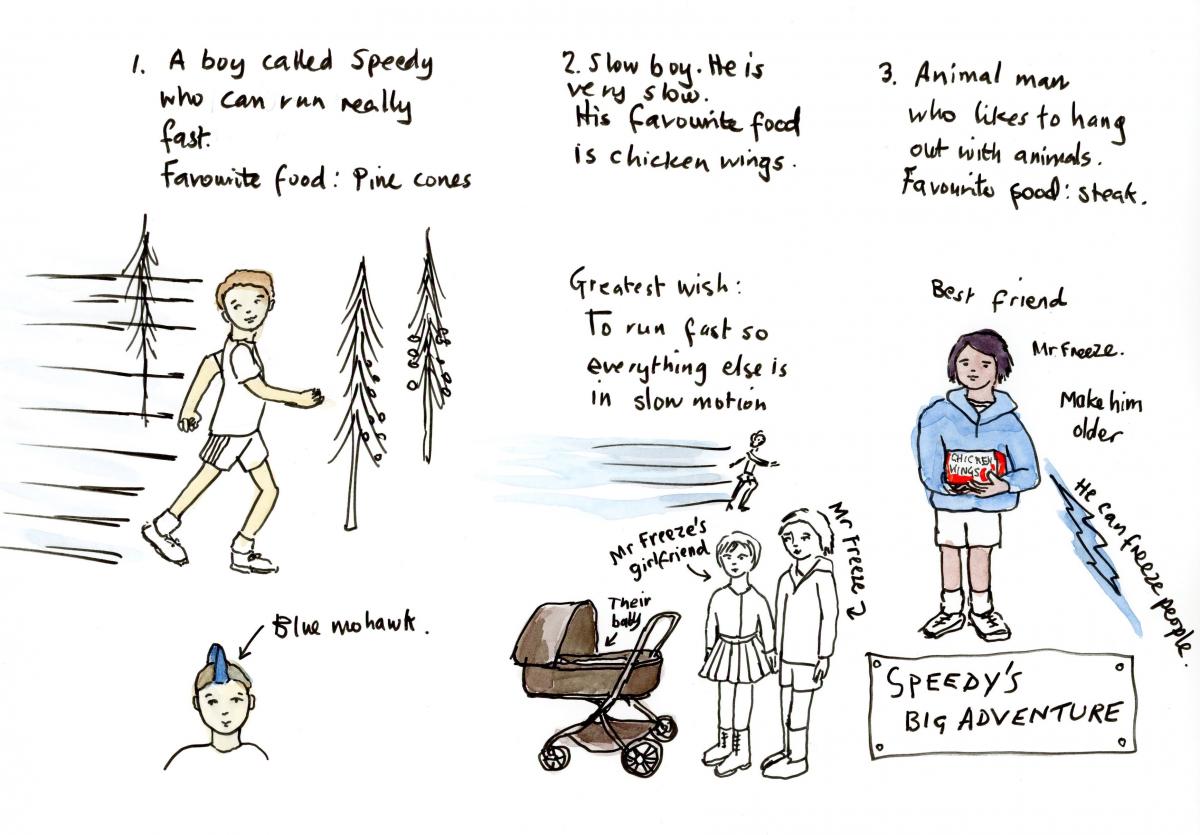 1. A boy called Speedy
who can run really
fast.
Favourite food: Pine cones
2. Slow boy. He is
very slow.
His favourite food
is chicken wings.
3. Animal man
who likes to hang
out with animals.
Favourite food: steak.
Greatest wish:
To run fast so
everything else is
in slow motion
Best friend
Mr Freeze.
Make him
older
CHICKEN
WINGS
He can freeze people.
Mr Freeze's
girlfriend
Mr Freeze
Their
baby
Blue mohawk.
SPEEDY'S
BIG ADVENTURE